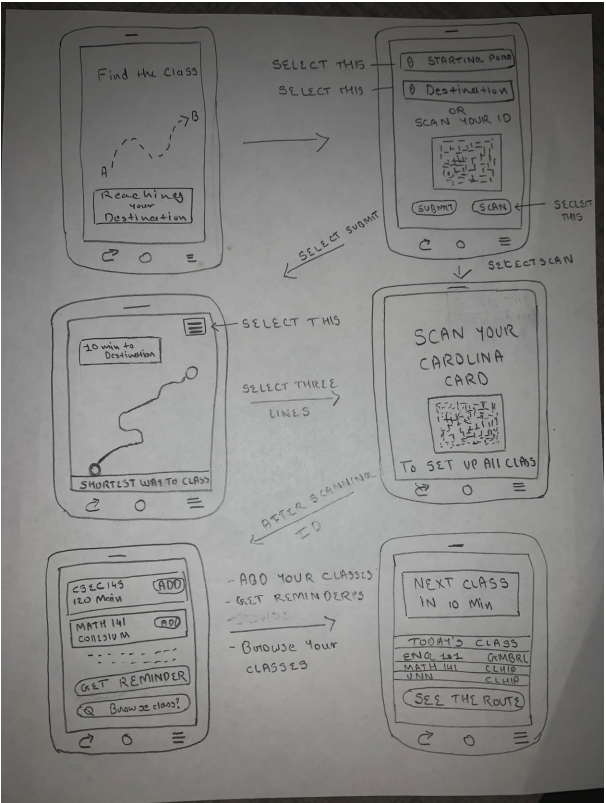 Find the Class
B
A
Reaching
your
Destination
SELECT THIS
SELECT THIS
STARTING
Destination
OR
SCAN YOUR ID
SUBMIT
SCAN
SECLECT
THIS
SELECT SUBMIT
SELECT SCAN
10 min to
Destination
SELECT THIS
SELECT THREE
LINES
SHORTEST WAY TO CLASS
SCAN YOUR
CAROLINA
CARD
TO SET UP All CLASS
AFTER SCANNING
ID
CSEC 145
ADD
120 Main
MATH 141
ADD
GET REMINDER
Browse class!
- ADD YOUR CLASSES
- GET REMINDERS
- Browse Your
CLASSES
NEXT CLASS
IN 10 Min
TODAY'S CLASS
ENG 101 GMBRL
MATH 141 CLHIP
UNN CLHIP
SEE THE ROUTE